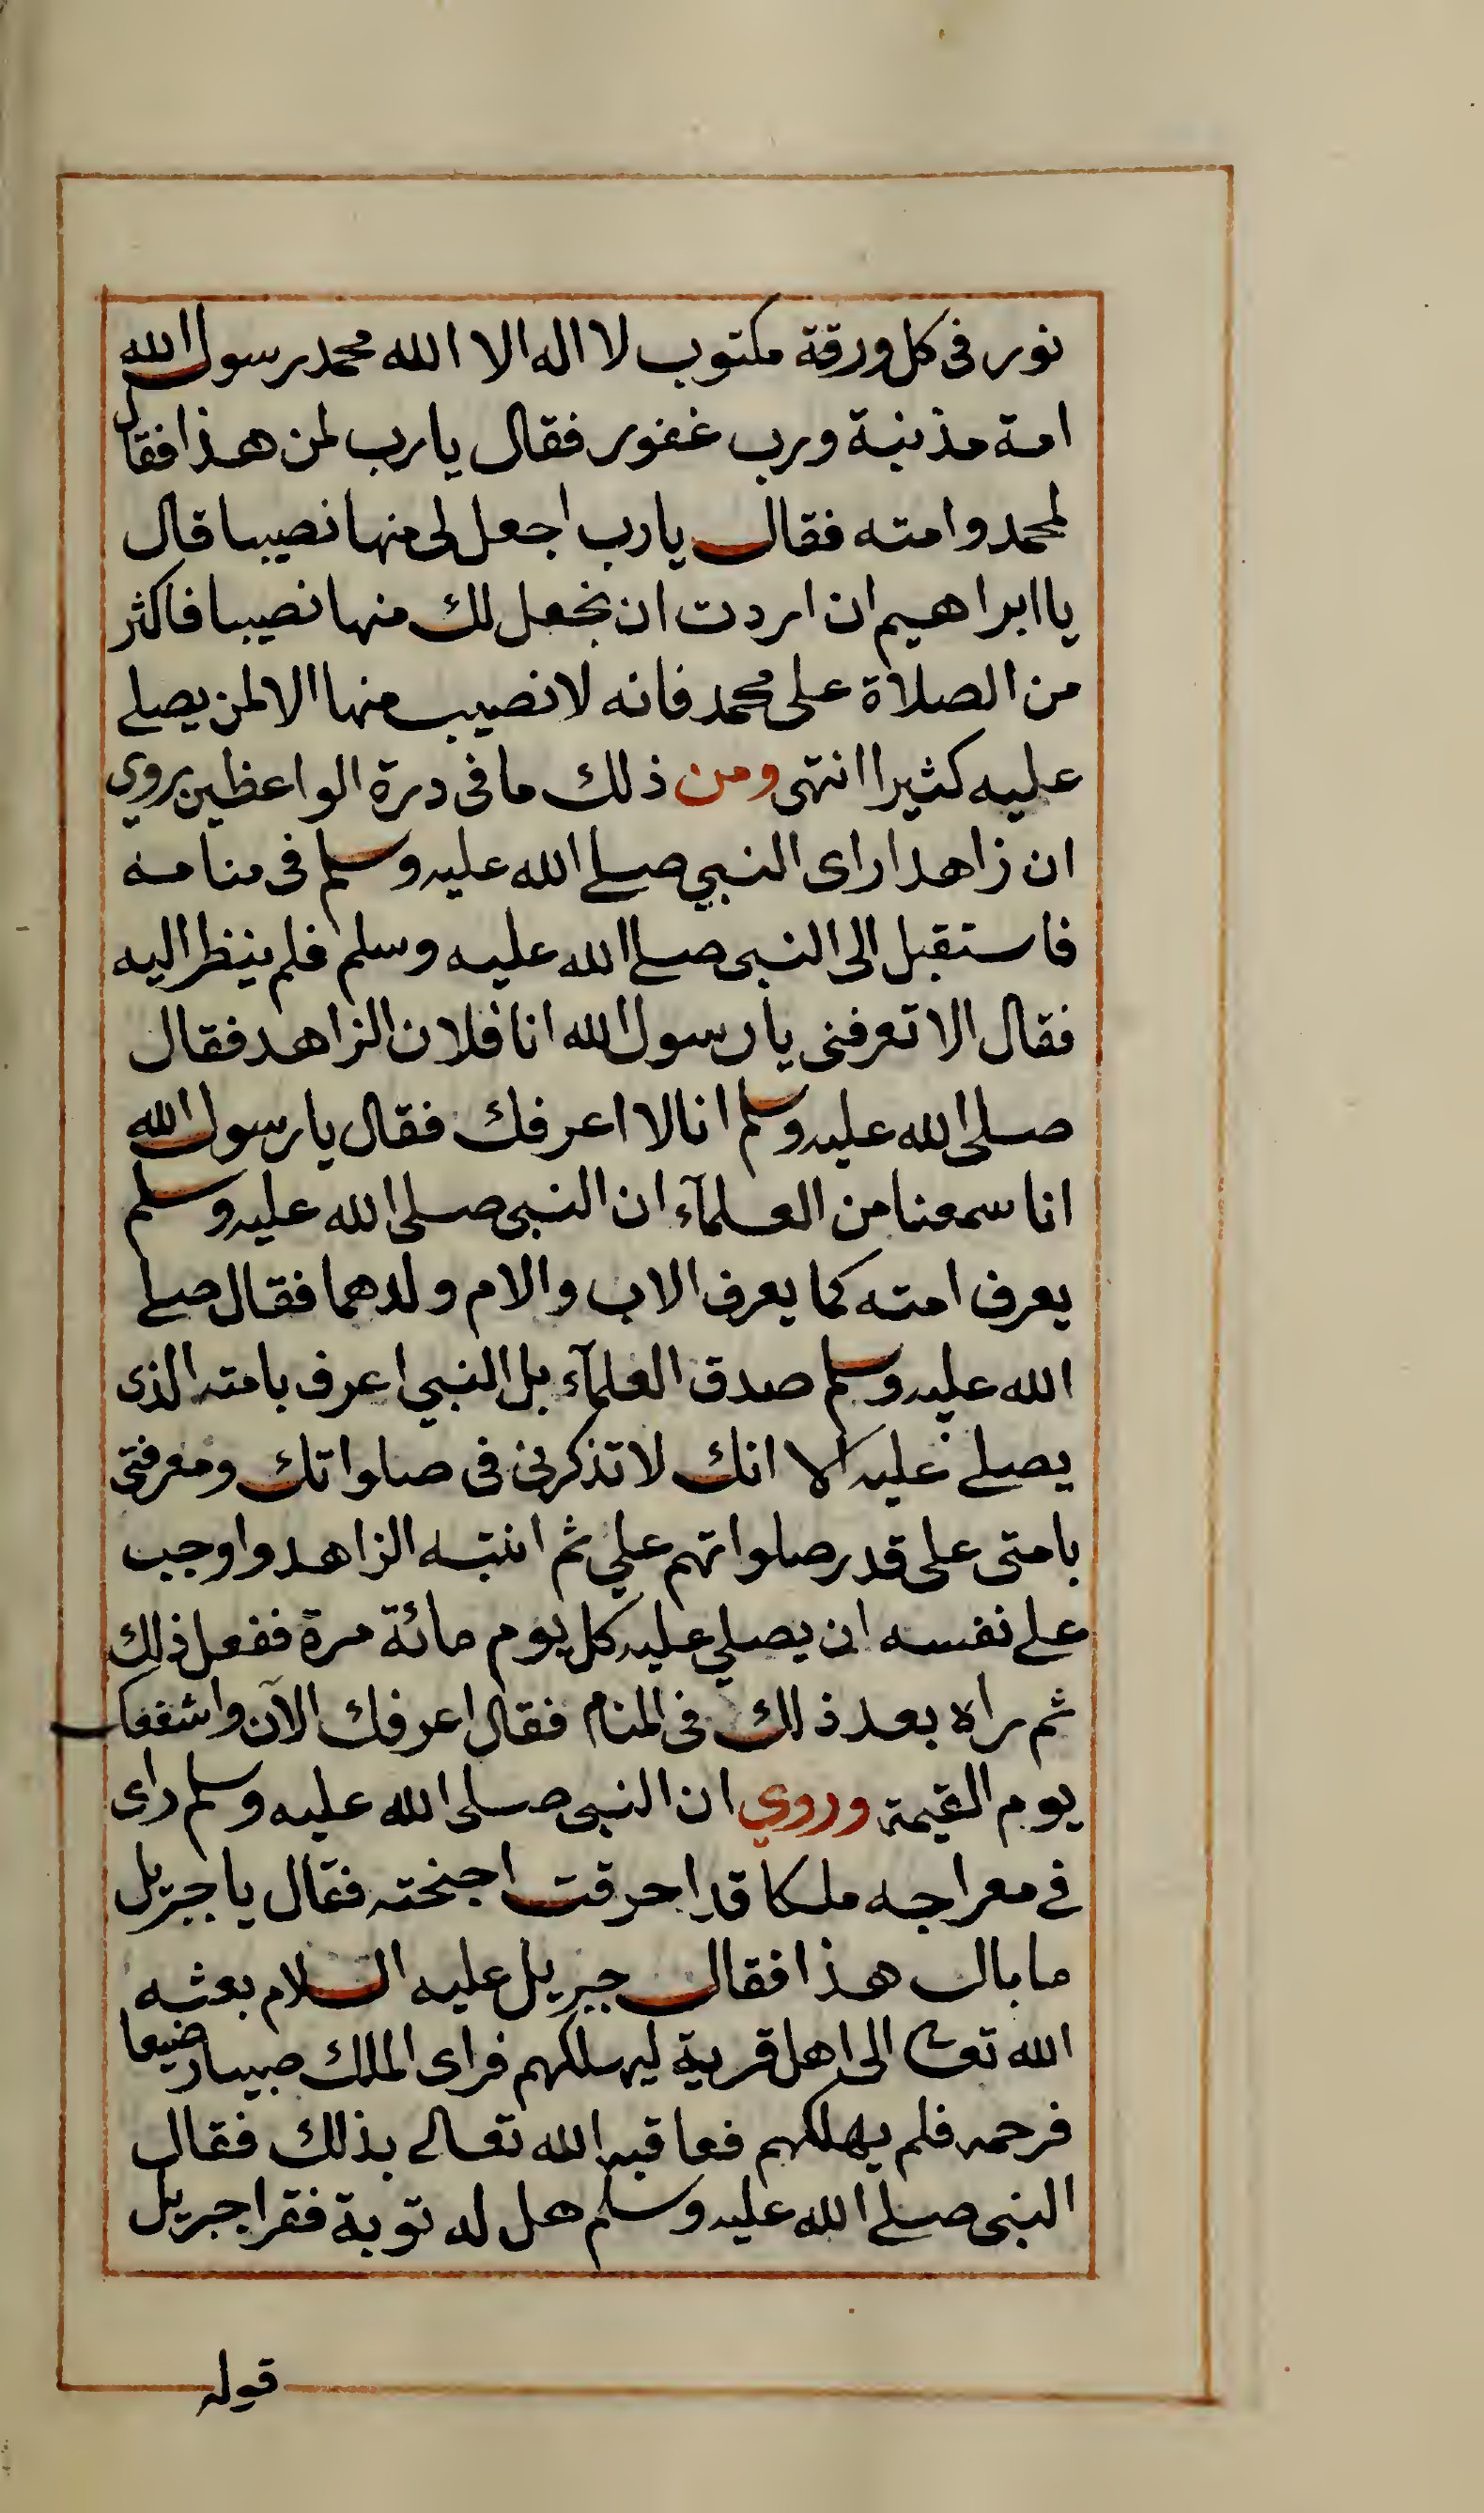 نور فى كل ورقة مكتوب لا اله الا الله محمد رسول الله
امة مذنبة ورب غفور فقال يا رب لمن هذا فقال
لمحمد وامته فقال يا رب اجعل لى منها نصيبا قال
يا ابراهيم ان اردت ان نجعل لك منها نصيبا فاكثر
من الصلاة على محمد فانه لا نصيب منها الا لمن يصلے
عليه كثيرا انتهى ومن ذلك ما فى درة الواعظين روي
ان زاهدا راى النبي صلے الله عليه وسلم فى منامه
فاستقبل الى النبى صلے الله عليه وسلم فلم ينظر اليه
فقال الا تعرفنى يا رسول الله انا فلان الزاهد فقال
صلى الله عليه وسلم انا لا اعرفك فقال يا رسول الله
انا سمعنا من العلمآء ان النبى صلى الله عليه وسلم
يعرف امته كما يعرف الاب والام ولدهما فقال صلے
الله عليه وسلم صدق العلمآء بل النبي اعرف بامته الذى
يصلے عليه الا انك لا تذكرنى فى صلواتك ومعرفتى
بامتى على قدر صلواتهم علي ثم انتبه الزاهد واوجب
على نفسه ان يصلي عليه كل يوم مائة مرة ففعل ذلك
ثم راه بعد ذلك فى المنام فقال اعرفك الآن واشفعك
يوم القيمة وروي ان النبى صلى الله عليه وسلم راى
فى معراجه ملكا قد احرقت اجنحته فقال يا جبريل
ما بال هذا فقال جبريل عليه السلام بعثه
الله تعا الى اهل قرية ليهلكهم فراى الملك صبيا رضيعا
فرحمه فلم يهلكهم فعاقبه الله تعالى بذلك فقال
النبى صلے الله عليه وسلم هل له توبة فقرا جبريل
قوله